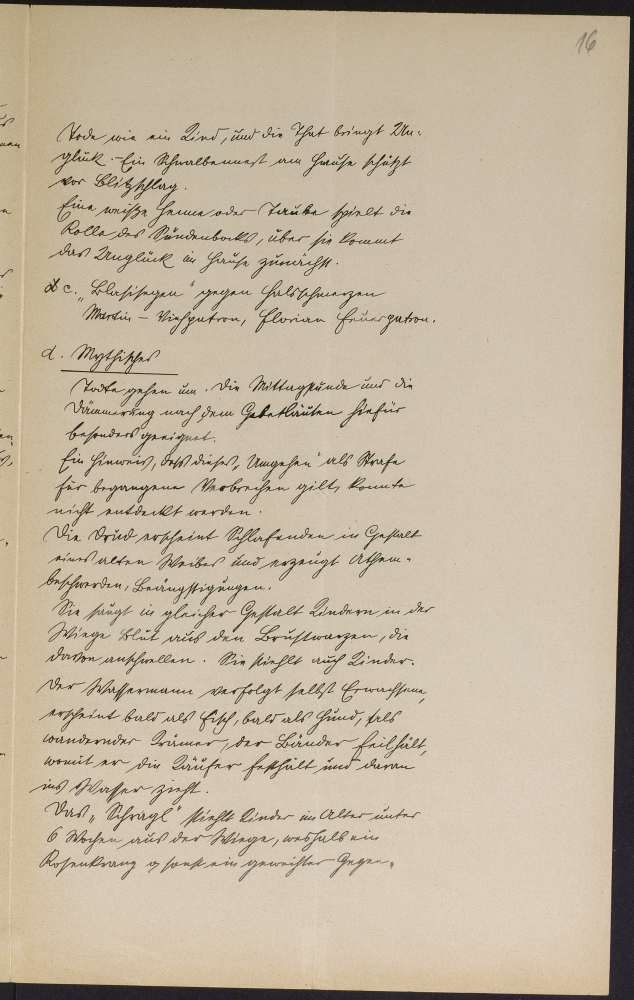 16
Tode wie ein Kind, und die That bringt Un-
glück. - Ein Schwalbennest am Hause schützt
vor Blitzschlag.
Eine weiße Henne oder Taube spielt die
Rolle des Sündenbocks, über sie kommt
das Unglück im Hause zunächst.
c. „Blasisegen" gegen Halsschmerzen
Martin - Viehpatron, Florian Feuerpatron.
d. Mythisches
Todte gehen um. Die Mittagstunde und die
Dämmerung nach dem Gebetläuten hiefür
besonders geeignet.
Ein Hinweis, dass dieses „Umgehen" als Strafe
für begangene Verbrechen gilt, konnte
nicht entdeckt werden.
Die Drud erscheint Schlafenden in Gestalt
eines alten Weibes und erzeugt Athem-
beschwerden, Beängstigungen.
Sie saugt in gleicher Gestalt Kindern in der
Wiege Blut aus den Brustwarzen, die
davon anschwellen. Sie stiehlt auch Kinder.
Der Wassermann verfolgt selbst Erwachsene,
erscheint bald als Fisch, bald als Hund, als
wandernder Krämer, der Bänder feilhält,
womit er die Käufer festhält und daran
ins Wasser zieht.
Das „Schragl" stiehlt Kinder im Alter unter
6 Wochen aus der Wiege, weshalb ein
Rosenkranz o sonst ein geweihter Gegen-